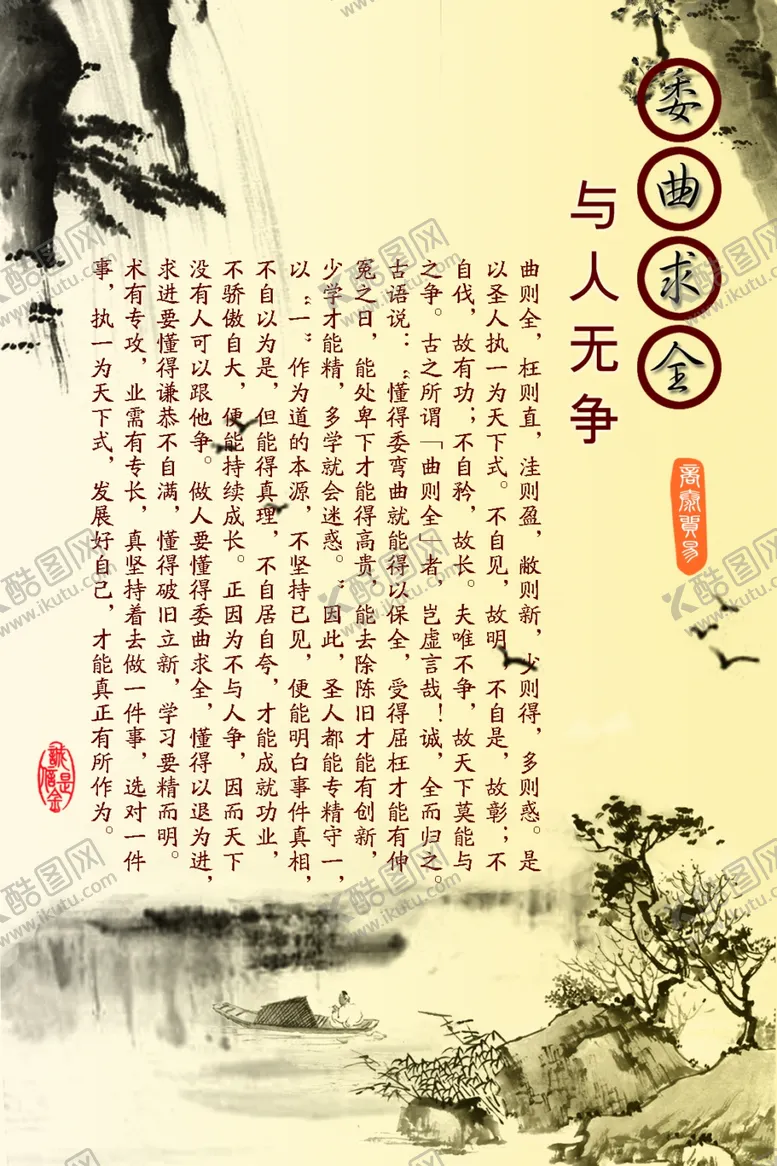 委曲求全
与人无争
商泰贸易
曲则全，枉则直，洼则盈，敝则新，少则得，多则惑。是
以圣人执一为天下式。不自见，故明，不自是，故彰；不
自伐，故有功；不自矜，故长。夫唯不争，故天下莫能与
之争。古之所谓「曲则全」者，岂虚言哉！诚，全而归之。
古语说：“懂得委弯曲就能得以保全，受得屈枉才能有伸
冤之日，能处卑下才能得高贵，能去除陈旧才能有创新，
少学才能精，多学就会迷惑。”因此，圣人都能专精守一，
以“一”作为道的本源，不坚持已见，便能明白事件真相，
不自以为是，但能得真理，不自居自夸，才能成就功业，
不骄傲自大，便能持续成长。正因为不与人争，因而天下
没有人可以跟他争。做人要懂得委曲求全，懂得以退为进，
求进要懂得谦恭不自满，懂得破旧立新，学习要精而明。
术有专攻，业需有专长，真坚持着去做一件事，选对一件
事，执一为天下式，发展好自己，才能真正有所作为。
誠信是金
酷图网
www.ikutu.com